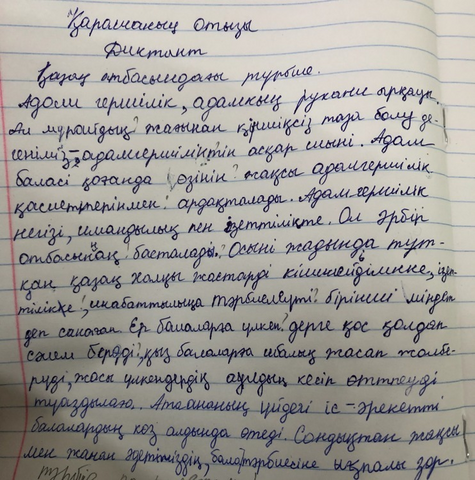 Қарашаның отызы
Диктант
Қазақ отбасындағы тұрғыле.
Адами гершілік, адамның рухани арқауы.
Ал мұрайдың? жағынан кіршіксіз таза болу де-
геніміз – адамгершіліктің асқар шыні. Адам
баласі қоғанда өзінін жақсы адамгершілік
қасиеттерінмен ардақталады. Адамгершілік
негізі, имандылық пен әдеттілікте. Ол әрбір
отбасынаң басталады? Осыні жадында тұт-
қан, қазақ халқы жастарді кішіпейдімнке, ізет-
тілікке, инабаттылыща тәрбиелеуті бірінші міндет
деп санаған. Ер балаларға үлкен, дерге қос қолдап
сәлем беруді, қыз балаларға ибалық жасап жолбе-
руді, жасы үлкендердің аулдың кесіп өттпеуді
туғаздылаю. Атаананың үйдегі іс – әрекетті
балалардың көз алдында өтеді. Сондықтан жақсы
мен жанан әдетіміздің, бала тәрбиесіне ықпалы зор.